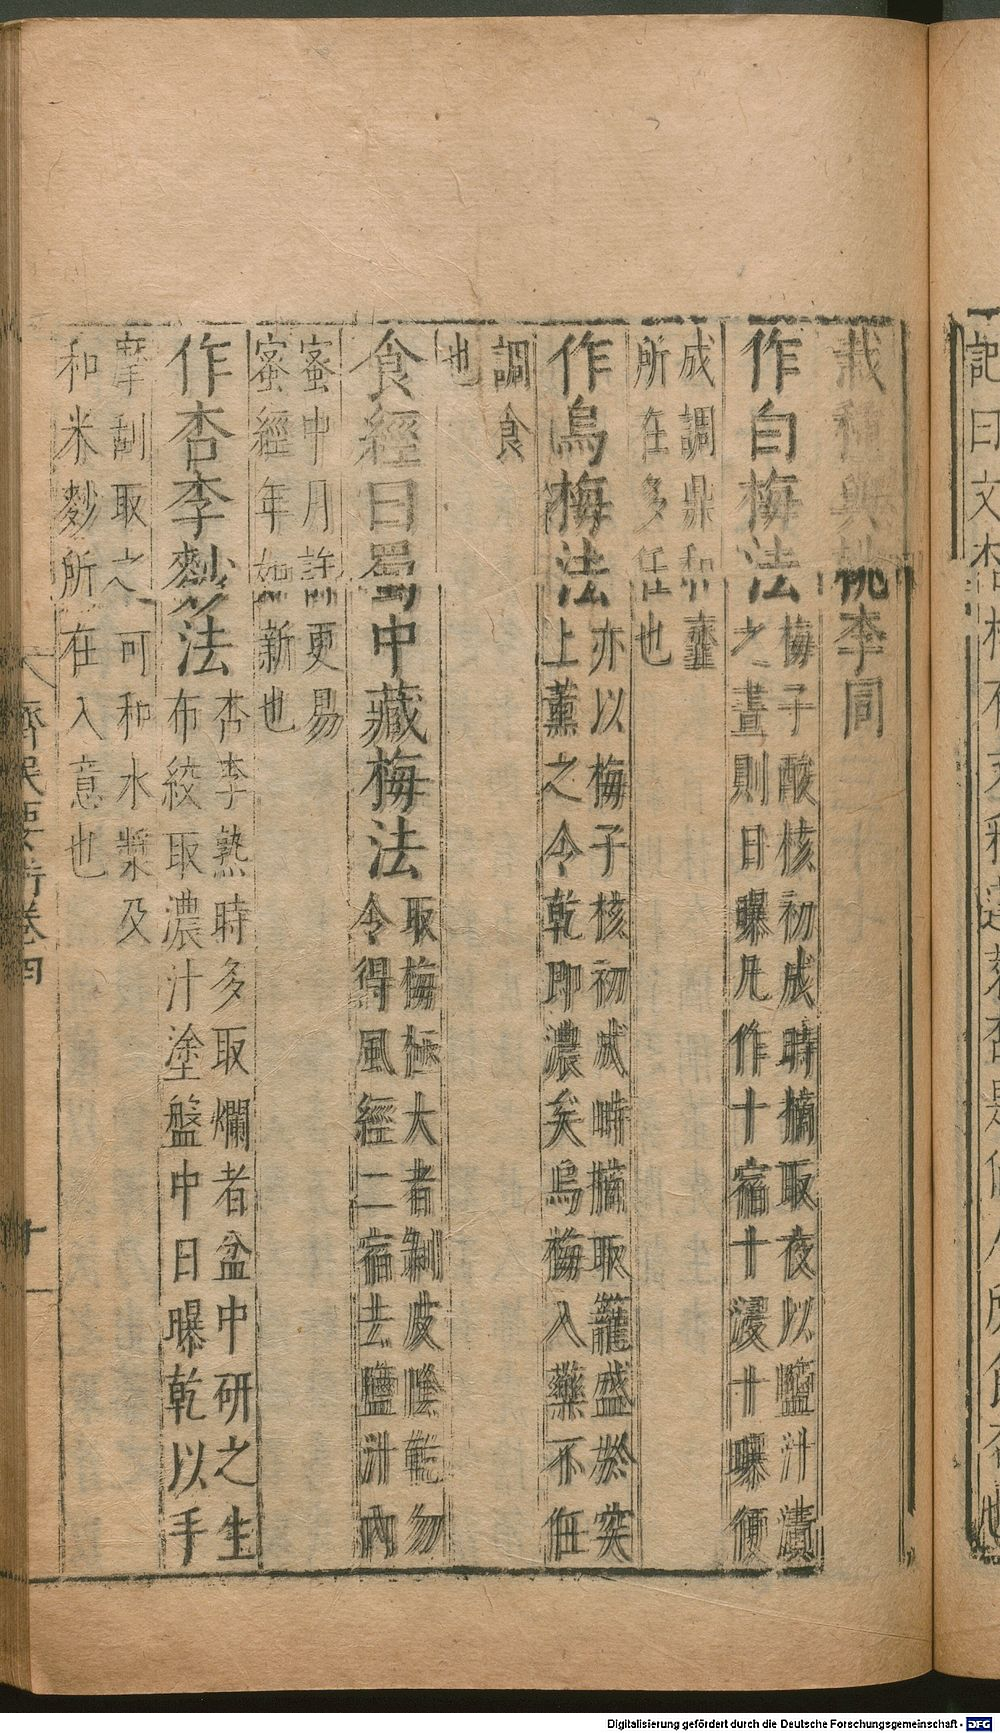 栽種與桃李同
作白梅法梅子酸核初成時摘取夜以鹽汁漬
之晝則日曝凡作十宿十浸十曝便
成調鼎和虀
所在多任也
作烏梅法亦以梅子核初成時摘取籠盛於突
上薰之令乾即濃矣烏梅入藥不任
調食
也
食經曰蜀中藏梅法取梅極大者剝皮陰乾勿
令得風經二宿去鹽汁內
蜜中月許更易
蜜經年如新也
作杏李麨法杏李熟時多取爛者盆中研之生
布絞取濃汁塗盤中日曝乾以手
摩刮取之可和水漿及
和米麨所在入意也
齊民要術卷四
十
Digitalisierung gefördert durch die Deutsche Forschungsgemeinschaft - DFG